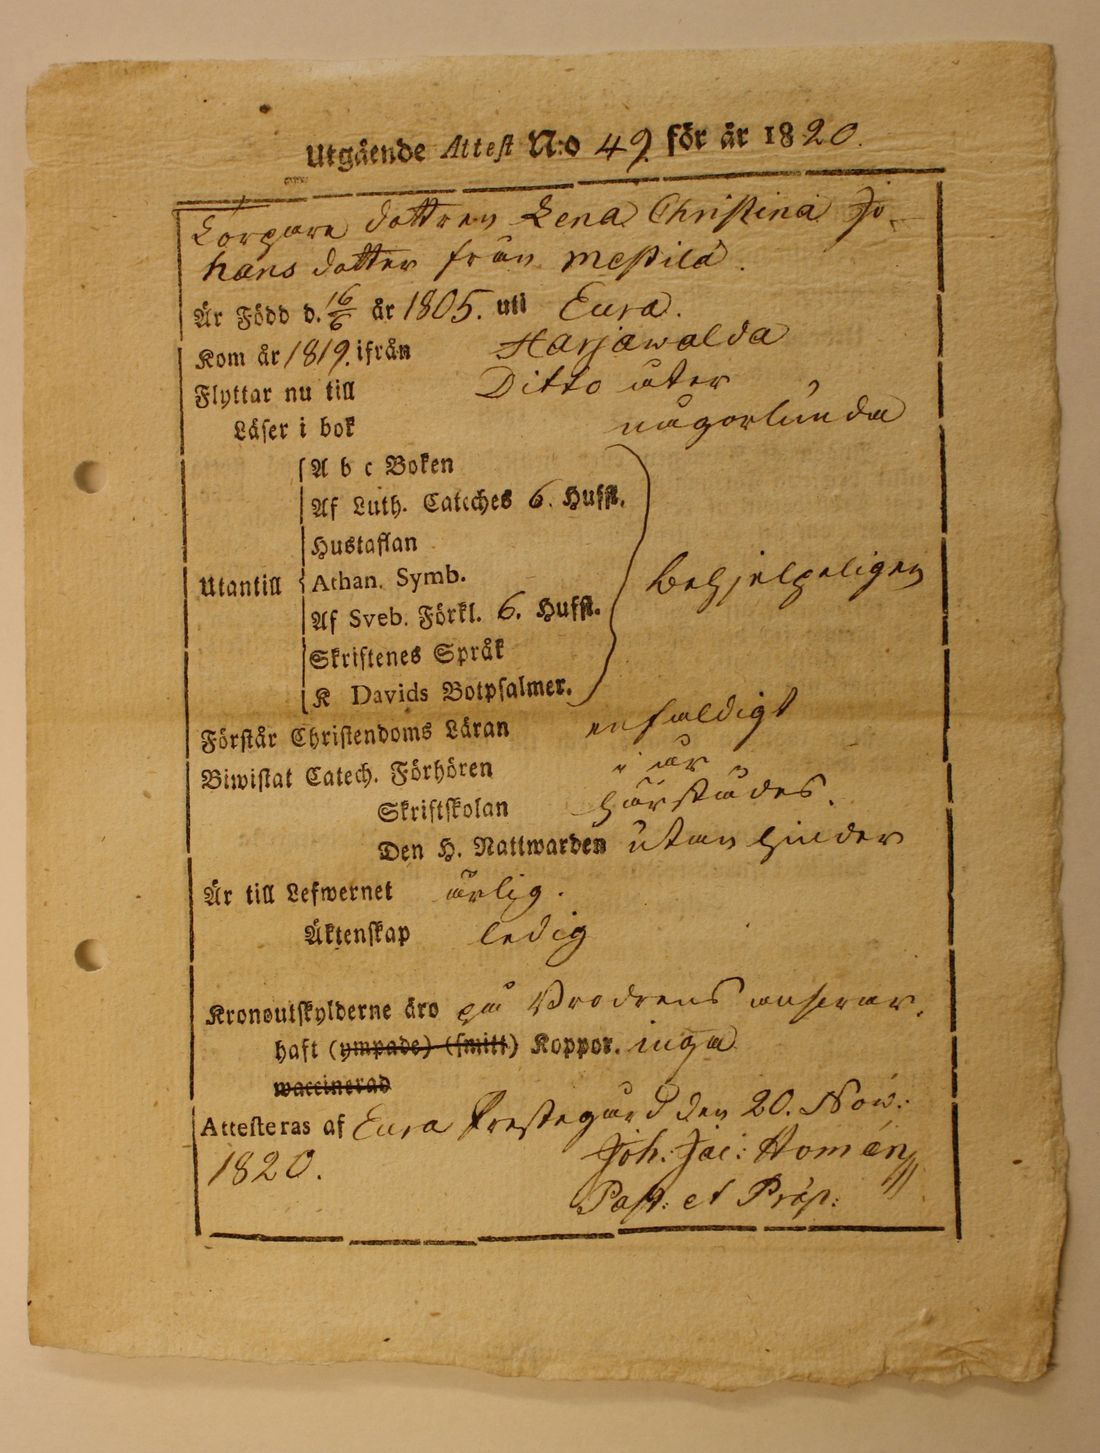 Utgående Attest N:o 49. för år 1820.
Torpare dottren Lena Christina Jo-
hans dotter från Mestilä.
Är Född d. 16/6 år 1805. uti Eura.
Kom år 1819. ifrån Harjawalda
Flyttar nu till Ditto åter
Läser i bok någorlunda
A b c Boken
Af Luth. Cateches 6. Hufst.
Hustaflan
Utantill Athan. Symb. behjelpeligen
Af Sveb. Förkl. 6. Hufst.
Skriftenes Språk
K Davids Botpsalmer.
Förstår Christendoms Läran enfaldigt
Biwistat Catech. Förhören i år
Skriftskolan härstädes.
Den H. Nattwarden utan hinder
Är till Lefwernet ärlig.
Äktenskap ledig
Kronoutskylderne äro på Brodrens answar.
haft (ympade) (smitt) Koppor. inga
waccinerad
Attesteras af Eura Prestegård den 20. Now:
1820. Joh: Jac: Homén
Past: et Præp: